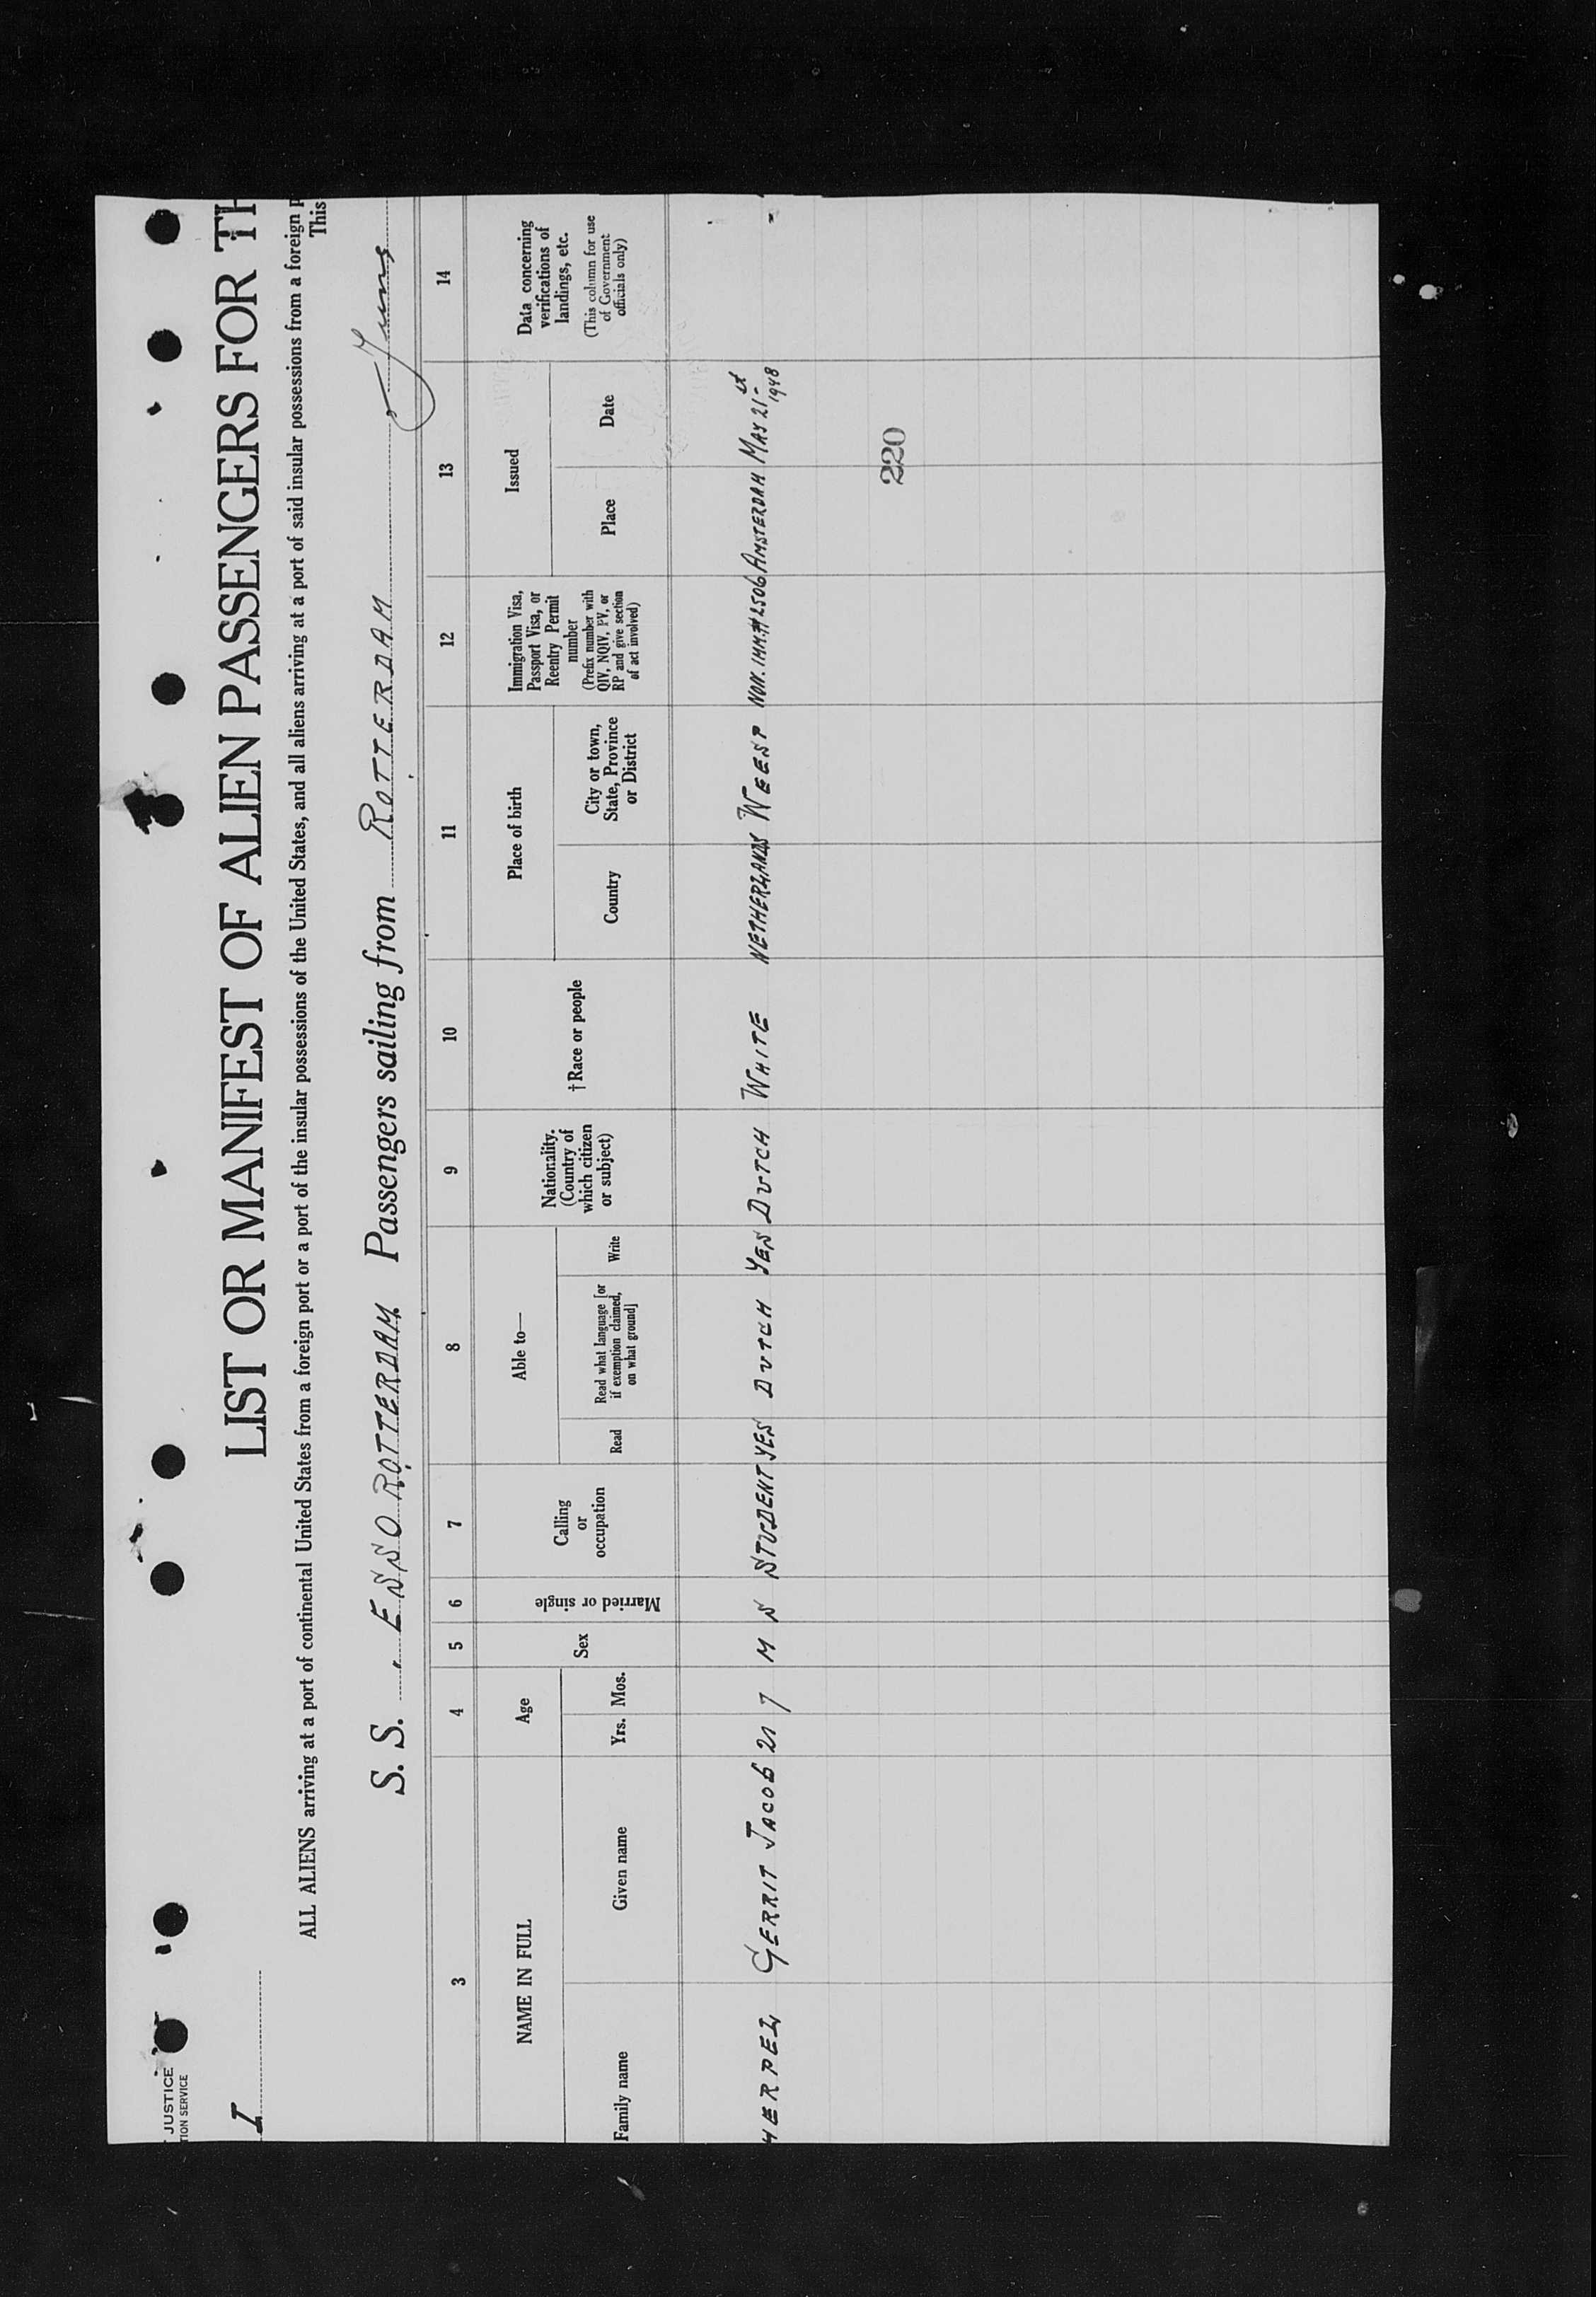 JUSTICE
TION SERVICE
I
LIST OR MANIFEST OF ALIEN PASSENGERS FOR TH
ALL ALIENS arriving at a port of continental United States from a foreign port or a port of the insular possessions of the United States, and all aliens arriving at a port of said insular possessions from a foreign p
This
S. S. ESSO ROTTERDAM. Passengers sailing from ROTTERDAM
3 4 5 6 7 8 9 10 11 12 13 14
NAME IN FULL
Family name
Given name
Age
Yrs. Mos.
Sex
Married or single
Calling
or
occupation
Able to—
Read
Read what language [or
if exemption claimed,
on what ground]
Write
Nationality.
(Country of
which citizen
or subject)
†Race or people
Place of birth
Country
City or town,
State, Province
or District
Immigration Visa,
Passport Visa, or
Reentry Permit
number
(Prefix number with
QIV, NQIV, PV, or
RP and give section
of act involved)
Issued
Place
Date
Data concerning
verifications of
landings, etc.
(This column for use
of Government
officials only)
HERPEL GERRIT JACOB 21 7 M S STUDENT YES DUTCH YES DUTCH WHITE NETHERLANDS WEESP NON.IMM.# 2506 AMSTERDAM MAY 21st
1948
220